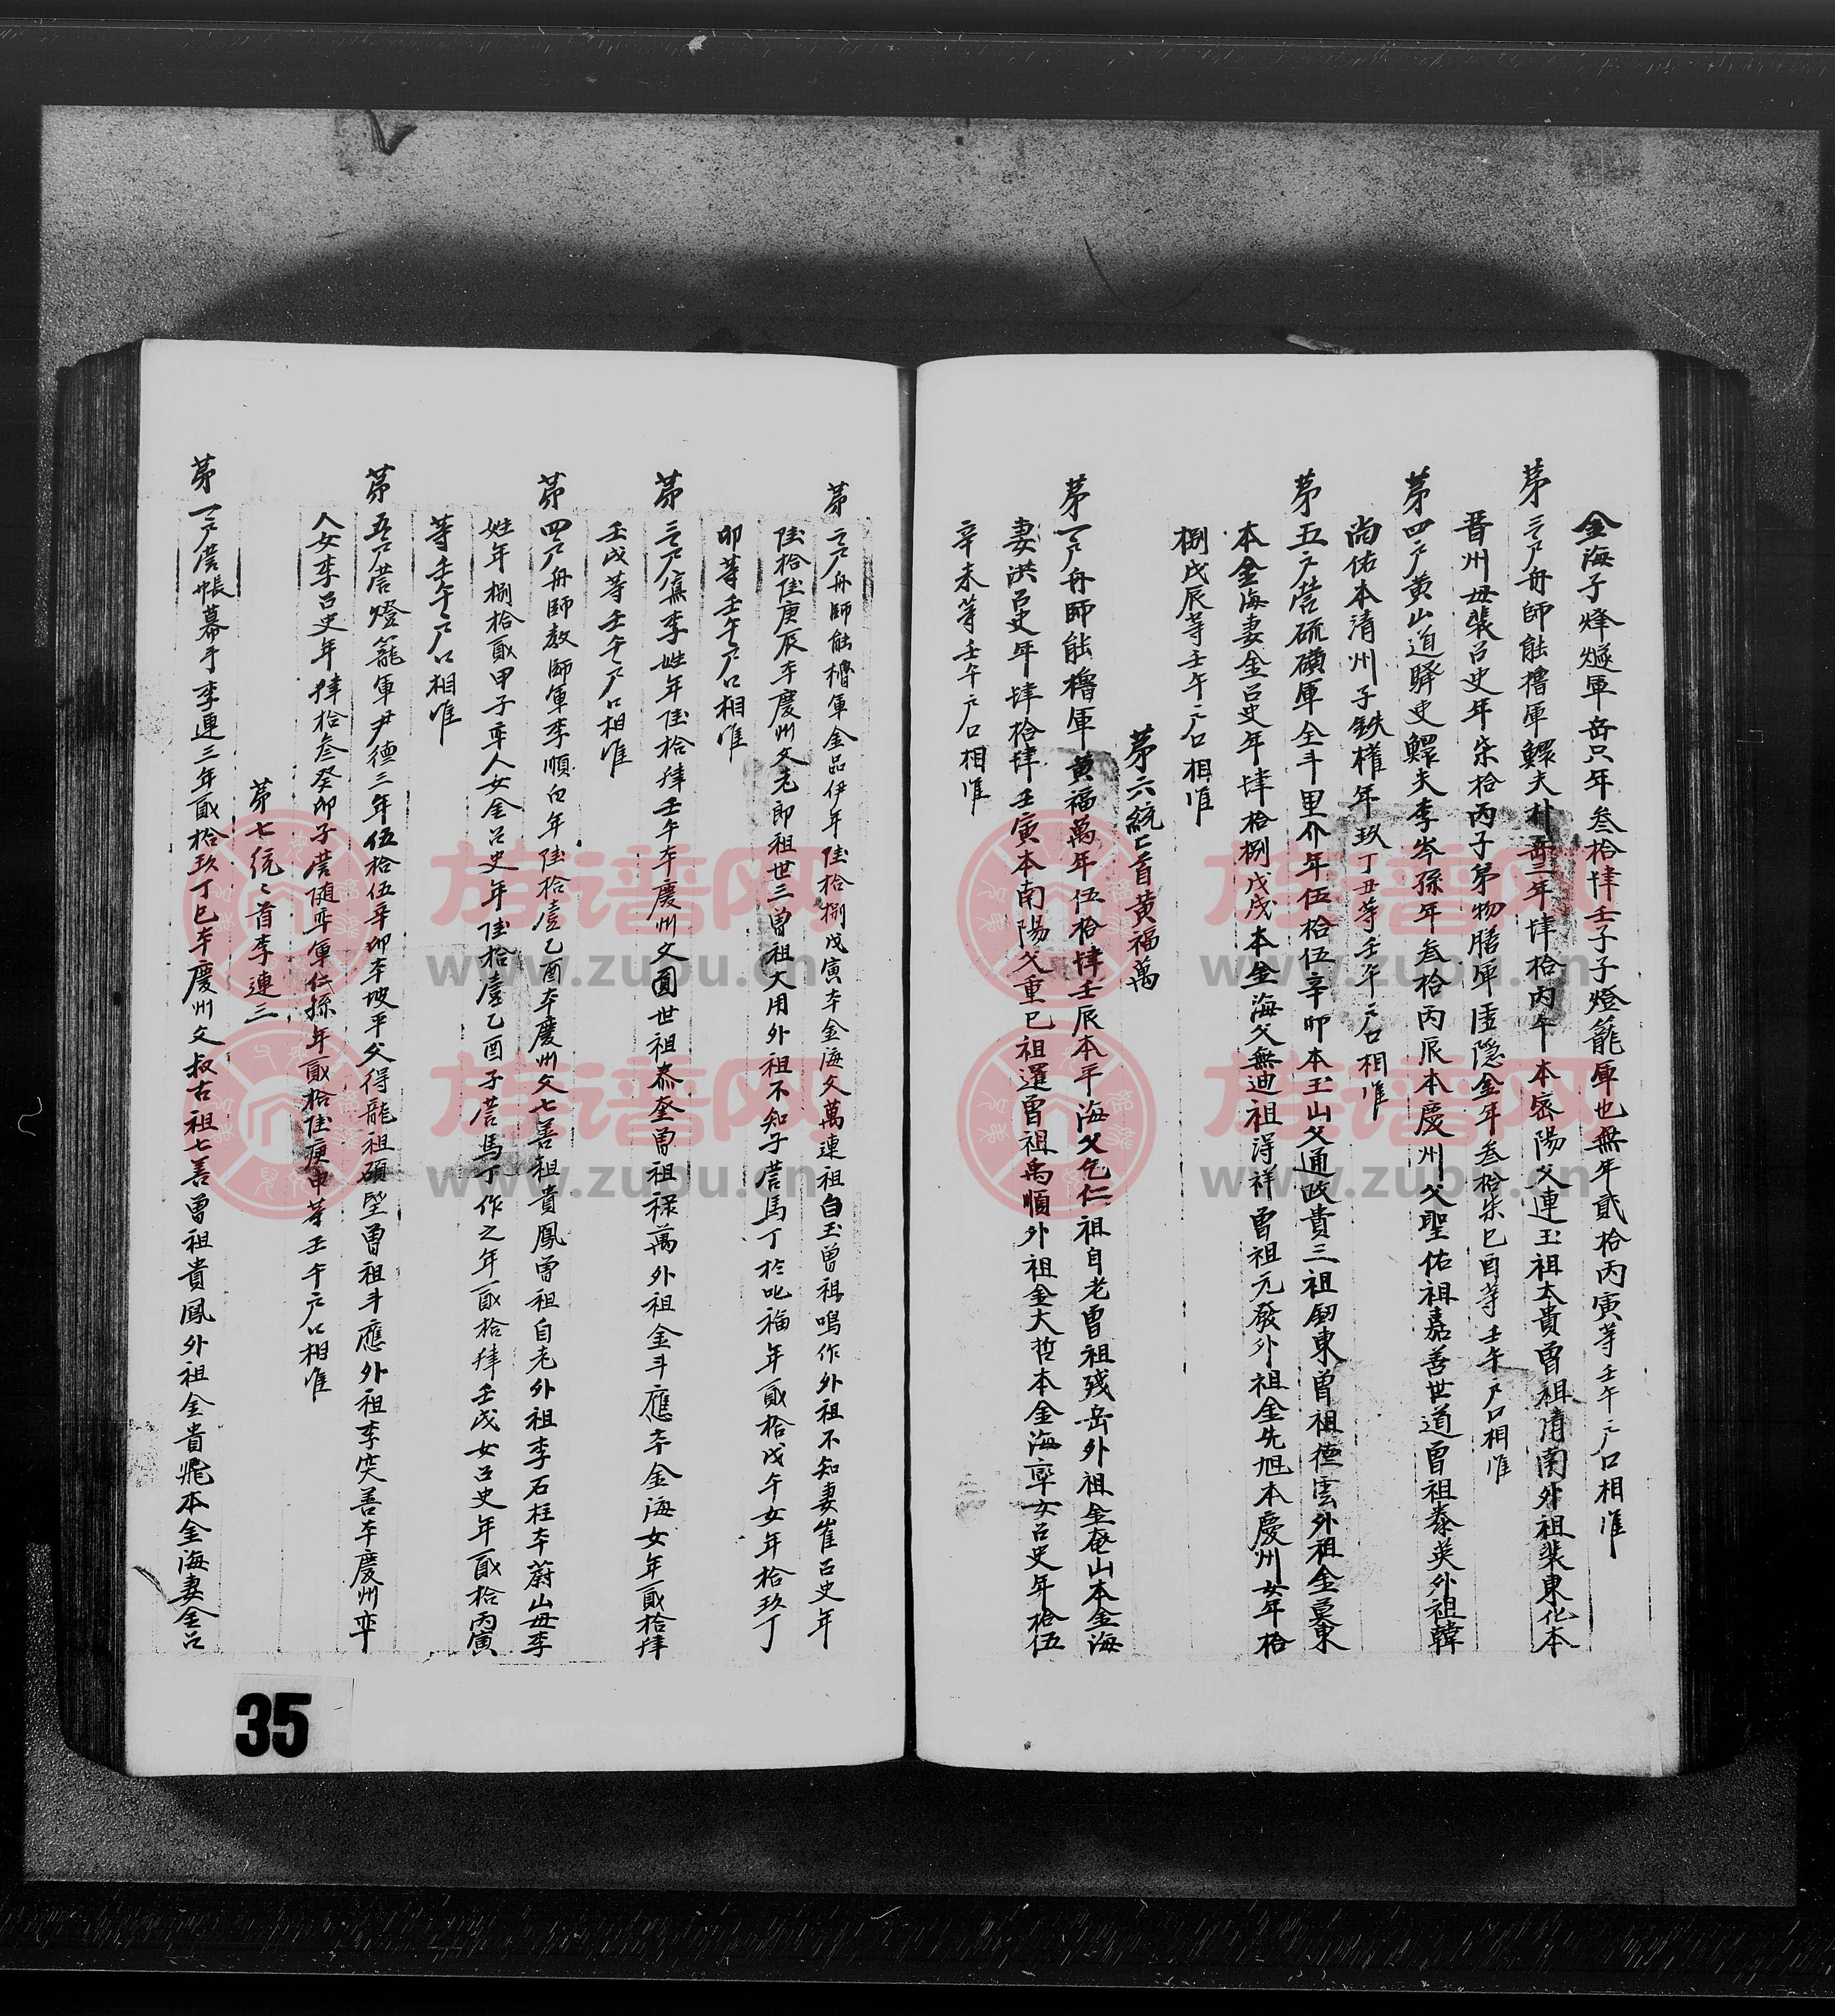 金海子烽燧軍岳只年叁拾肆壬子子燈籠軍也無年貳拾丙寅等壬午戶口相准
第三戶舟師能櫓軍鰥夫朴 年肆拾丙午本密陽父連玉祖太貴曾祖淸南外祖裴東化本
晋州母裴召史年柒拾丙子弟物膳軍 隱金年叁拾柒己酉等壬午戶口相准
第四戶黃山道驛吏鰥夫李岑孫年叁拾丙辰本慶州父聖佑祖嘉善世道曾祖泰英外祖韓
尚佑本清州子鉄權年玖丁丑等壬午戶口相准
第五戶营硫磺軍全斗里介年伍拾伍辛卯本玉山父通政貴三祖 東曾祖德雲外祖金 東
本金海妻金召史年肆拾捌戊戌本金海父無迪祖淂祥曾祖元發外祖金先旭本慶州女年拾
捌戊辰等壬午戶口相准
第六統匕首黃福萬
第一戶舟師能櫓軍黃福萬年伍拾肆壬辰本平海父乞仁祖自老曾祖 岳外祖金奄山本金海
妻洪召吏年肆拾肆壬寅本南陽父重已祖暹曾祖禹順外祖金大哲本金海率女召史年拾伍
辛未等壬午戶口相准
第二戶舟師能櫓軍金品伊年陸拾捌戊寅本金海父萬連祖白玉曾祖鳴作外祖不知妻崔召史年
陸拾陸庚辰本慶州父老郎祖世三曾祖大用外祖不知子营馬丁於叱福年貳拾戊午女年拾玖丁
卯等壬午戶口相准
第三戶寡李姓年陸拾肆壬午本慶州父圓世祖泰奎曾祖禄萬外祖金斗應本金海女年貳拾肆
壬戌等壬午戶口相准
第四戶舟師教師軍李順白年陸拾壹乙酉本慶州父七善祖貴鳳曾祖自老外祖李石柱本蔚山母李
姓年捌拾貳甲子率人女金召史年陸拾壹乙酉子营馬丁作之年貳拾肆壬戌女召史年貳拾丙寅
等壬午戶口相准
第五戶营燈籠軍尹德三年伍拾伍辛卯本坡平父得龍祖碩堅曾祖斗應外祖李 善本慶州率
人女李召史年肆拾叁癸卯子营随率軍仁孫年貳拾陸庚申等壬午戶口相准
第七统匕首李連三
第一戶营帳幕手李連三年貳拾玖丁巳本慶州父叔古祖七善曾祖貴鳳外祖金貴 本金海妻金召
35
族谱网
www.zupu.cn
族谱网
www.zupu.cn
族谱网
www.zupu.cn
族谱网
www.zupu.cn